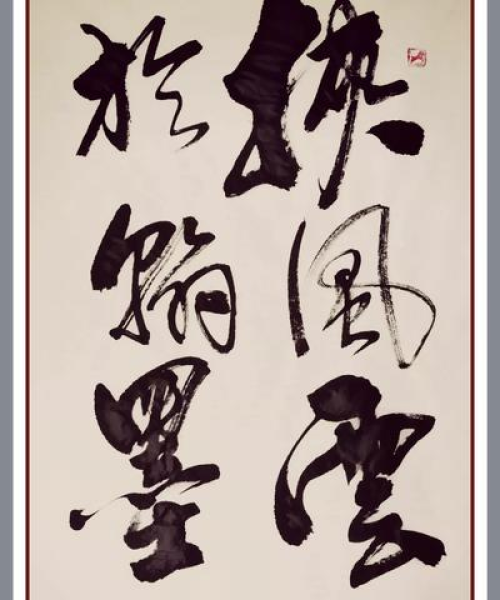 挟風雲
於翰墨